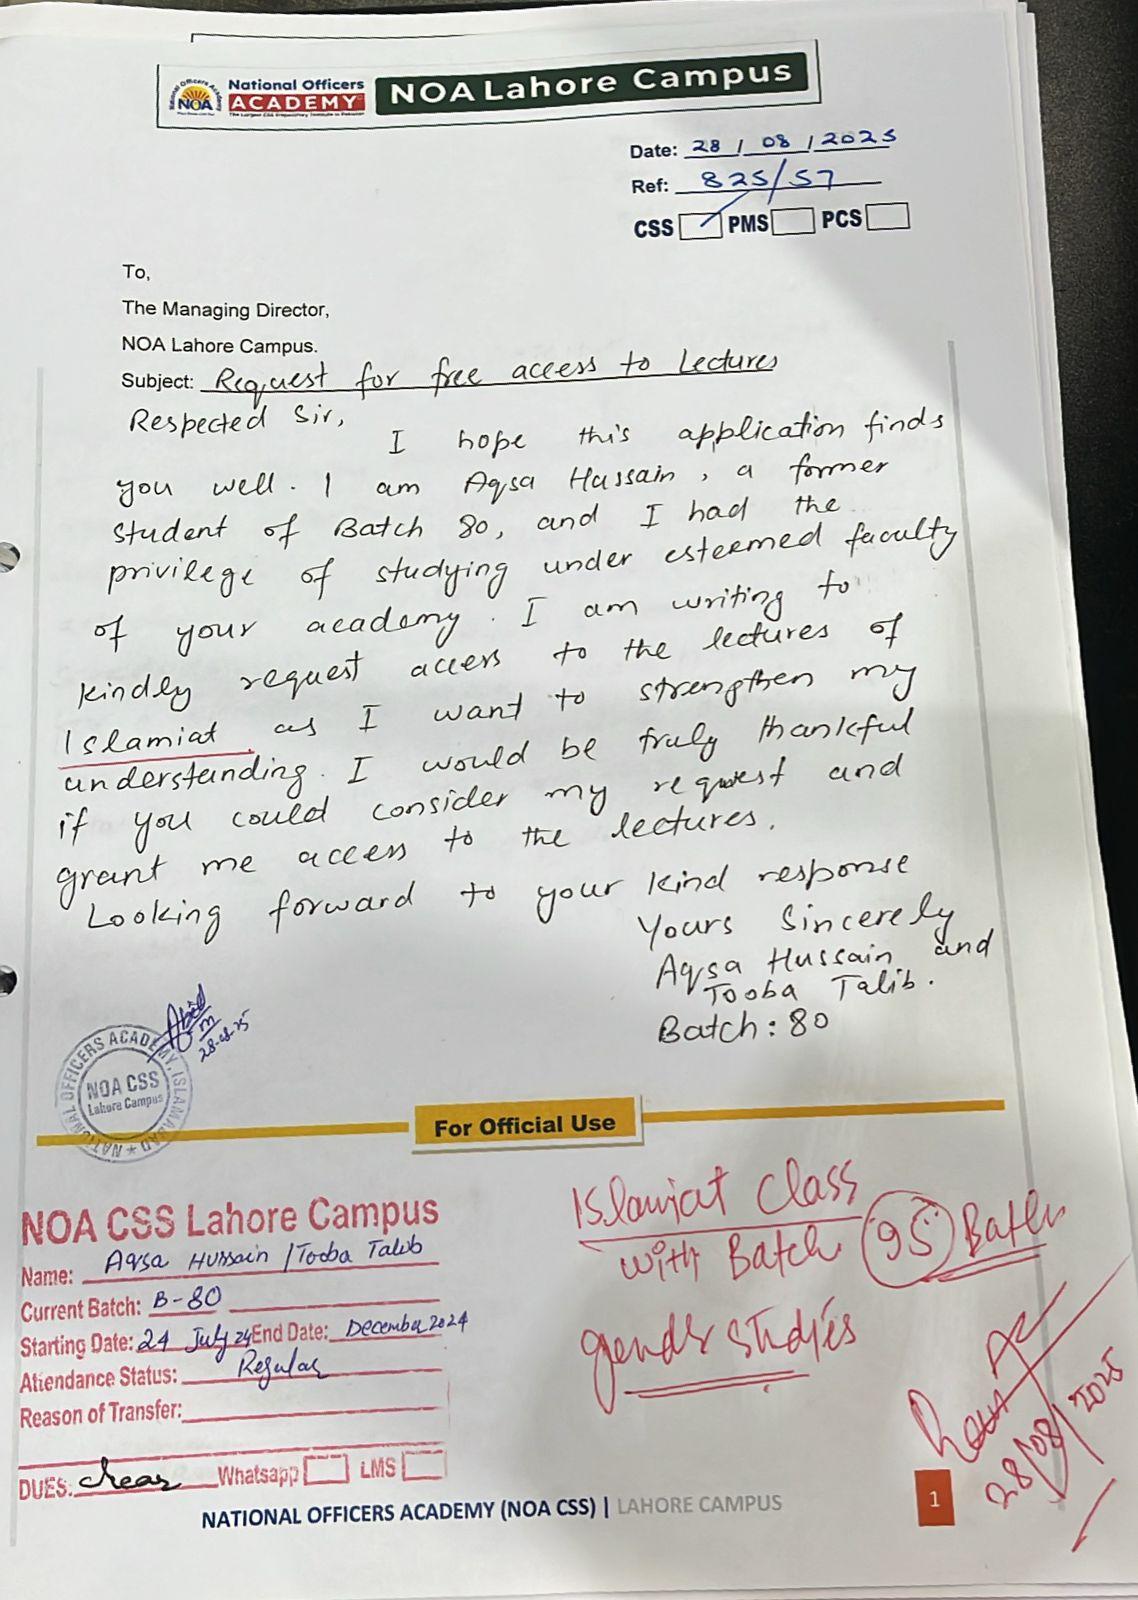 National Officers
ACADEMY
NOA
The Largest CSS Preparatory Institute in Pakistan
NOA Lahore Campus
Date: 28 / 08 / 2025
Ref: 825/57
CSS PMS PCS
To,
The Managing Director,
NOA Lahore Campus.
Subject: Request for free access to Lectures
Respected Sir,
I hope this application finds
you well. I am Aqsa Hussain, a former
student of Batch 80, and I had the
privilege of studying under esteemed faculty
of your academy. I am writing to
kindly request access to the lectures of
Islamiat as I want to strengthen my
understanding. I would be truly thankful
if you could consider my request and
grant me access to the lectures.
Looking forward to your kind response
Yours Sincerely
Aqsa Hussain and
Tooba Talib.
Batch: 80
28-08-25
NATIONAL OFFICERS ACADEMY, ISLAMABAD
NOA CSS
Lahore Campus
For Official Use
NOA CSS Lahore Campus
Name: Aqsa Hussain / Tooba Talib
Current Batch: B-80
Starting Date: 24 July 24 End Date: December 2024
Attendance Status: Regular
Reason of Transfer:
DUES: clear Whatsapp LMS
Islamiat Class
with Batch 95 Batch
gender studies
28/08/2025
NATIONAL OFFICERS ACADEMY (NOA CSS) | LAHORE CAMPUS
1